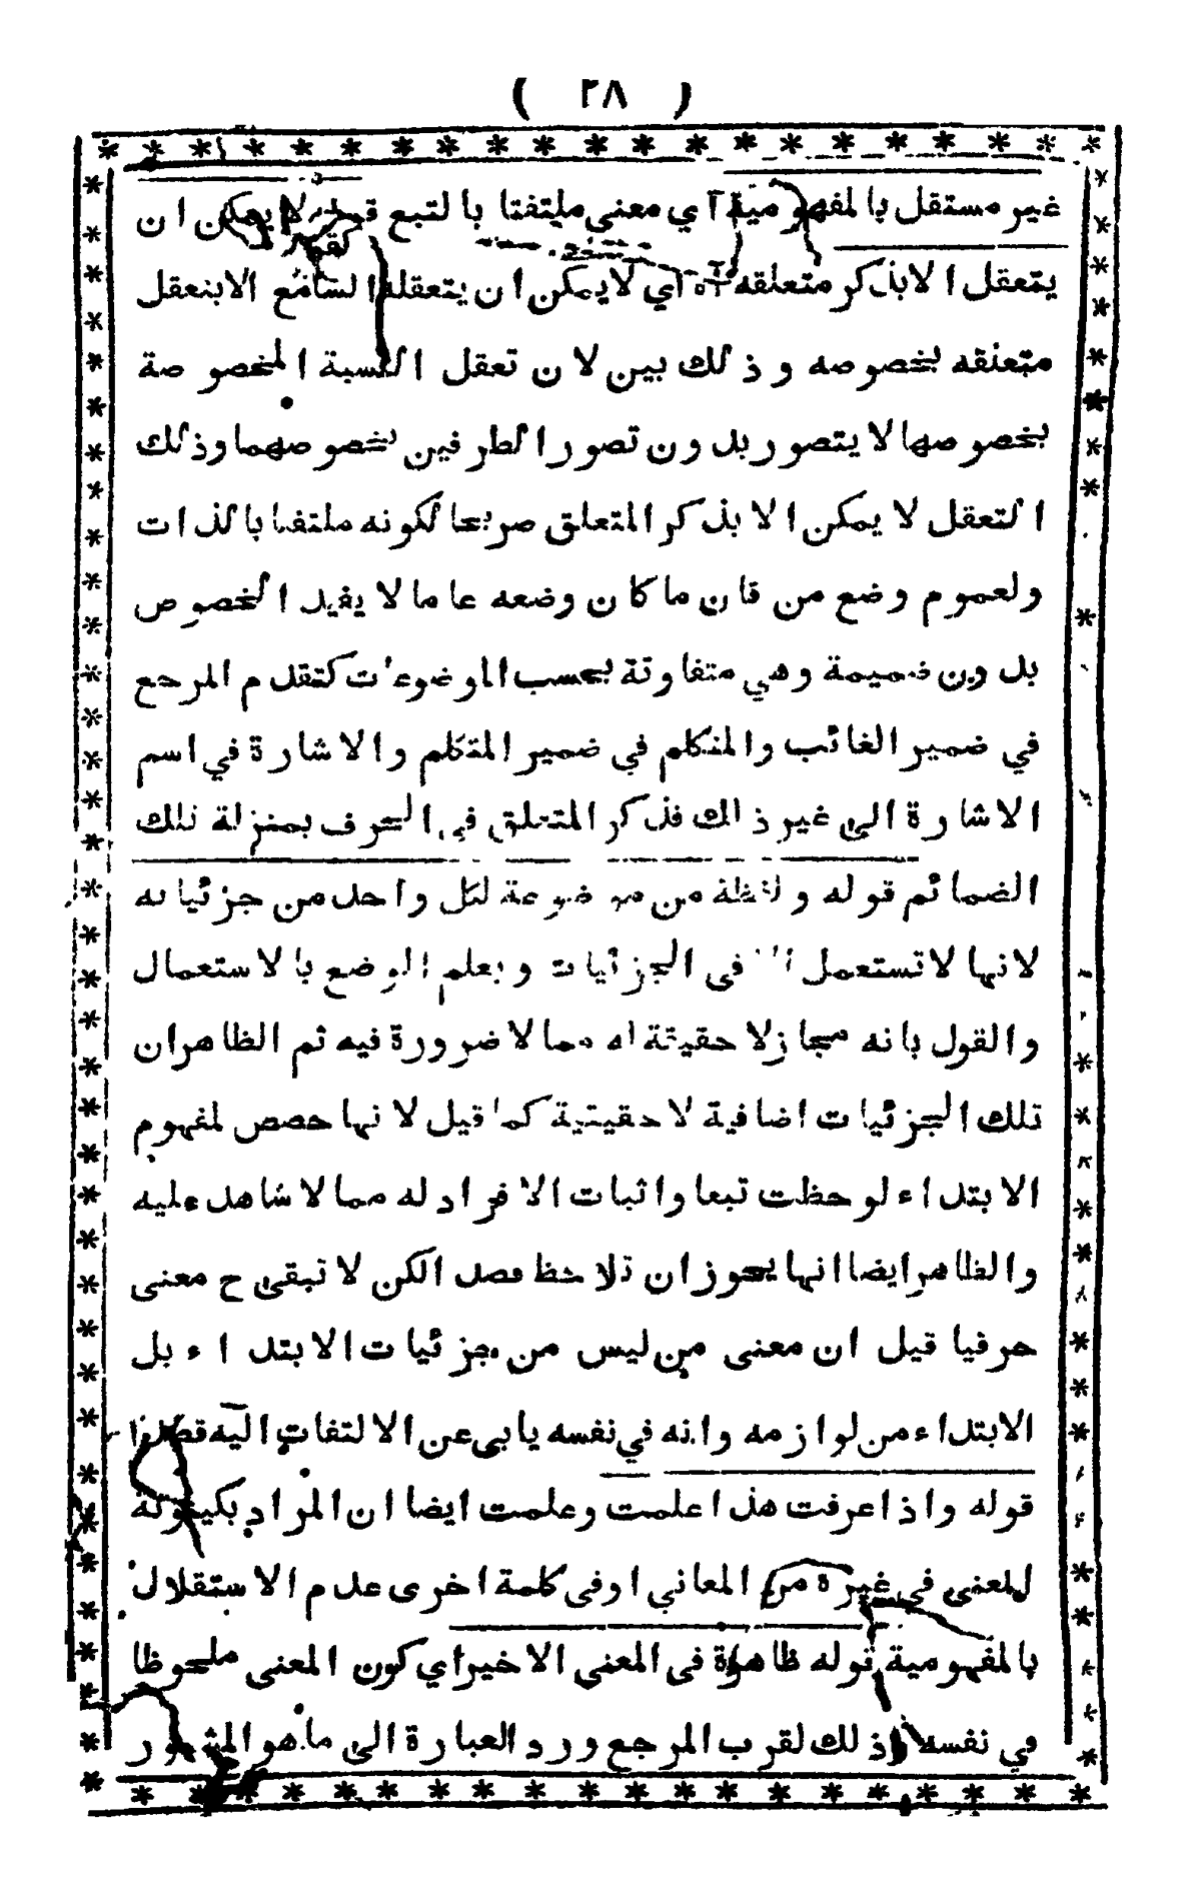 ( ٢٨ )
غير مستقل بالمفهومية آي معنى ملتفتا بالتبع قوله لا يمكن ان
يتعقل الا بذكر متعلقه آه اي لا يمكن ان يتعقله السامع الا بتعقل
متعلقه بخصوصه وذلك بين لان تعقل النسبة المخصوصة
بخصوصها لا يتصور بدون تصور الطرفين بخصوصهما وذلك
التعقل لا يمكن الا بذكر المتعلق صريحا لكونه ملتفتا بالذات
ولعموم وضع من فان ما كان وضعه عاما لا يفيد الخصوص
بدون ضميمة وهي متفاوتة بحسب الموضوعات كتقدم المرجع
في ضمير الغائب والمتكلم في ضمير المتكلم والاشارة في اسم
الاشارة الى غير ذلك فذكر المتعلق في الحرف بمنزلة تلك
الضمائم قوله ولفظة من موضوعة لكل واحد من جزئياته
لانها لا تستعمل الا في الجزئيات ويعلم الوضع بالاستعمال
والقول بانه مجاز لا حقيقة له مما لا ضرورة فيه ثم الظاهران
تلك الجزئيات اضافية لا حقيقية كما قيل لانها حصص لمفهوم
الابتداء لوحظت تبعا واثبات الافراد له مما لا شاهد عليه
والظاهر ايضا انها يجوز ان تلاحظ قصدا لكن لا تبقى ح معنى
حرفيا قيل ان معنى من ليس من جزئيات الابتداء بل
الابتداء من لوازمه وانه في نفسه يابى عن الالتفات اليه قصدا
قوله واذا عرفت هذا علمت وعلمت ايضا ان المراد بكينونة
المعنى في غيره من المعاني او في كلمة اخرى عدم الاستقلال
بالمفهومية قوله ظاهرة في المعنى الاخير اي كون المعنى ملحوظا
في نفسه وذلك لقرب المرجع وورد العبارة الى ما هو المشهور